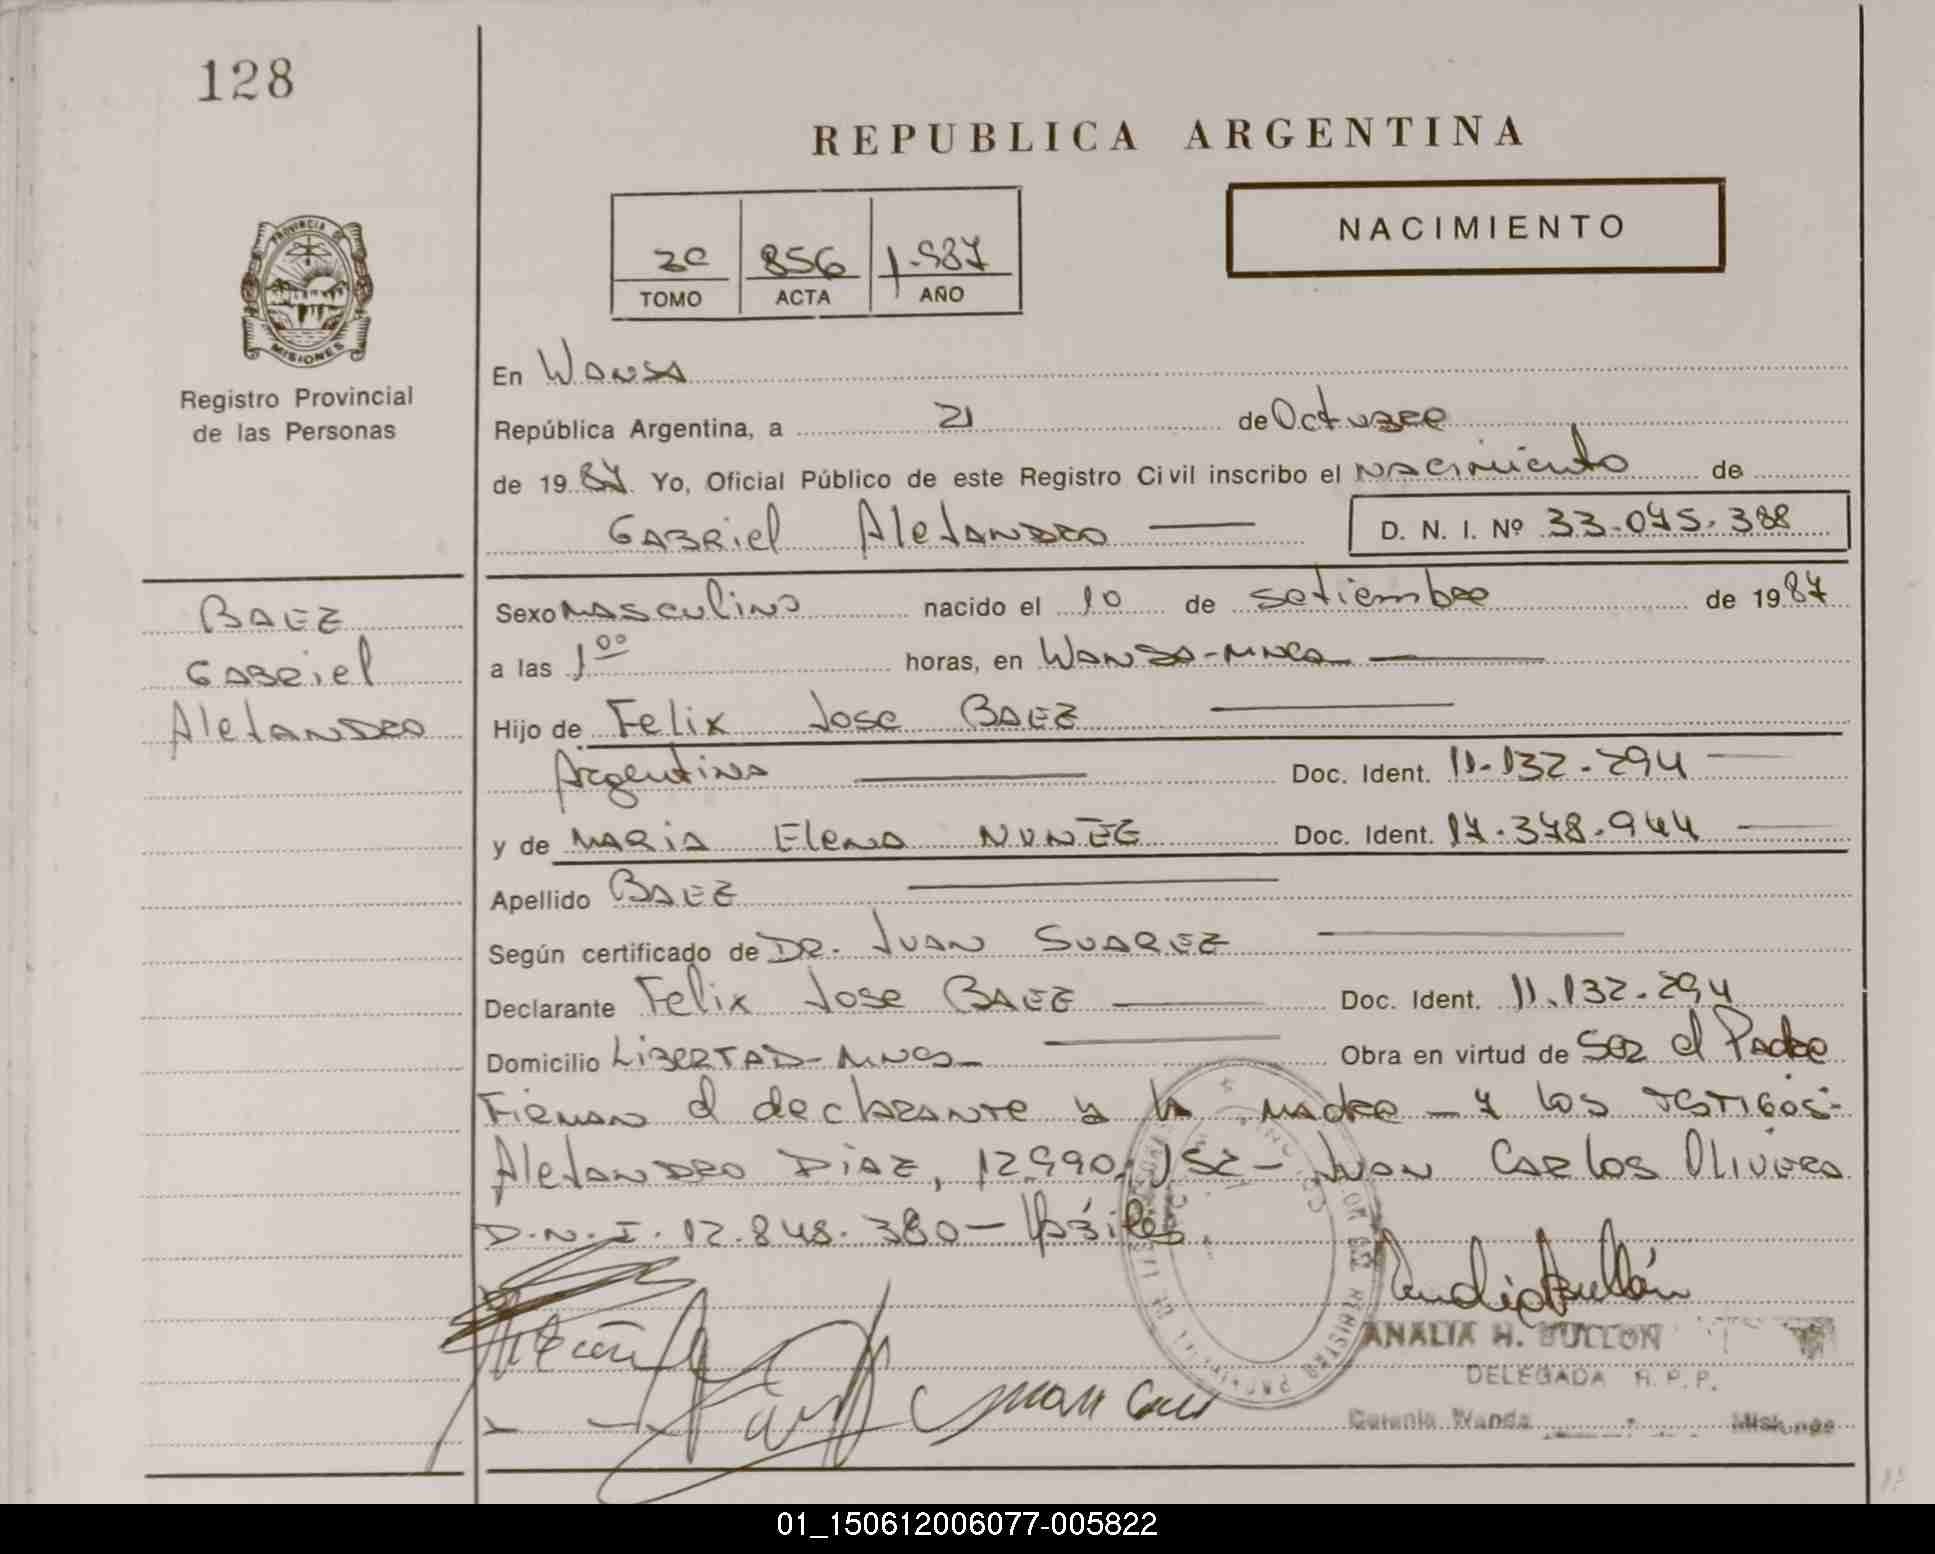 128
REPUBLICA ARGENTINA
NACIMIENTO
2º 856 1.987
TOMO ACTA AÑO
PROVINCIA DE
MISIONES
Registro Provincial
de las Personas
En WANDA
República Argentina, a 21 de Octubre
de 1987 Yo, Oficial Público de este Registro Civil inscribo el NACimiento de
GABRiel AleJANDRO D. N. I. Nº 33.075.388
BAEZ
GABRiel
AleJANDRO
Sexo MASCulINO nacido el 10 de setiembre de 1987
a las 1 00 horas, en WANDA-MNES
Hijo de Felix Jose BAEZ
ArgentiNA Doc. Ident. 11.132.294
y de MARiA EleNA NUÑEZ Doc. Ident. 17.378.944
Apellido BAEZ
Según certificado de DR. JUAN SUAREZ
Declarante Felix Jose BAEZ Doc. Ident. 11.132.294
Domicilio LIBERTAD-MNES Obra en virtud de SER el Padre
FIRMAN el declARANTE y la madre - y los TESTIGOS:
AleJANDRO DiAZ, 12.990.152- JUAN CARLOS OliVERA
D.N.I. 12.848.380- HáBiles
ANALIA H. BULLON
DELEGADA R.P.P.
Colonia Wanda Misiones
01_150612006077-005822